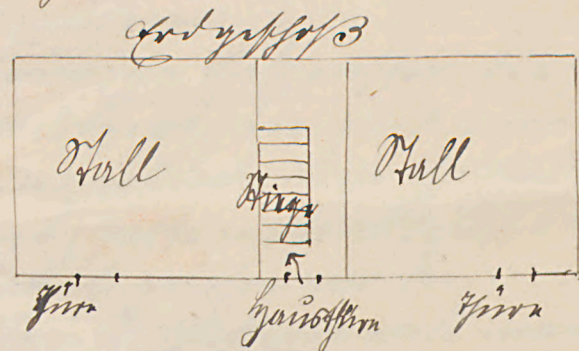 Erdgeschoß
Stall Stall
Stiege
Thüre Hausthüre Thüre